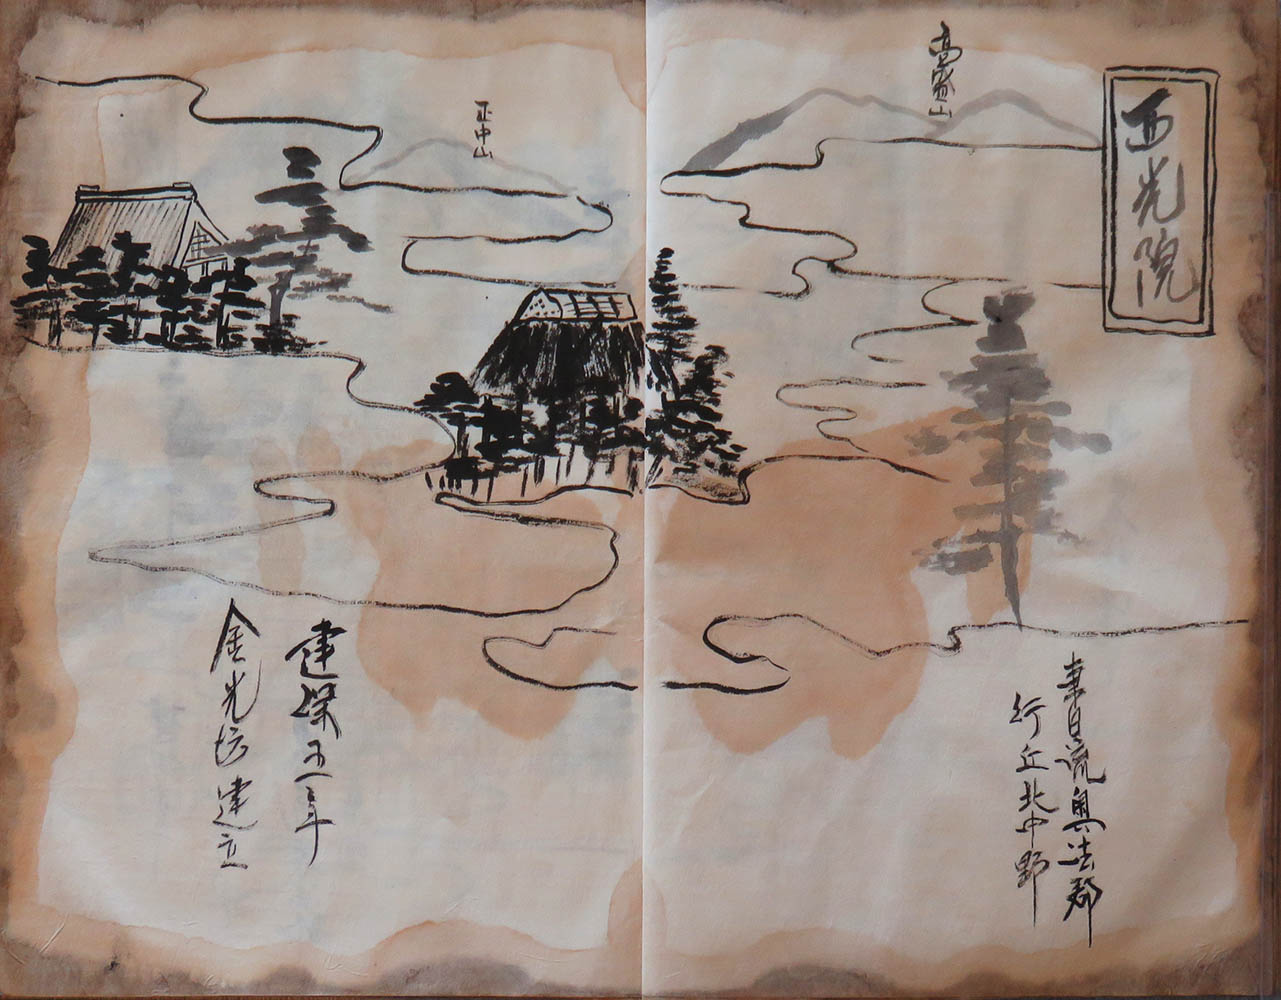 西光院
高山
正中山
東日流奥法郡
行丘北中野
建保五年
金光坊建立